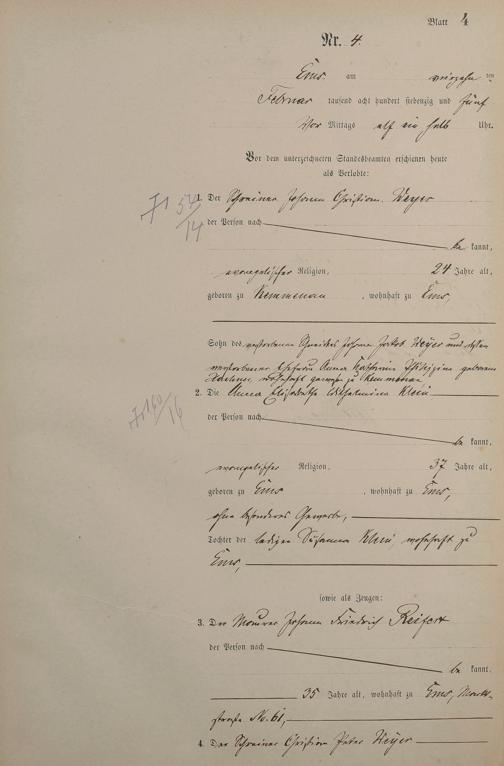 Blatt 4
Nr. 4.
Ems am vierzehn ten
Februar tausend acht hundert siebenzig und fünf
Vor Mittags elf ein halb Uhr.
Vor dem unterzeichneten Standesbeamten erschienen heute
als Verlobte:
1. Der Schreiner Johann Christian Heyer
der Person nach
be kannt,
evangelischer Religion, 24 Jahre alt,
geboren zu Kemmenau, wohnhaft zu Ems,
Sohn des verstorbenen Schneiders Johann Jakob Heyer und dessen
verstorbener Ehefrau Anna Katharina Philippine geborene
wohnhaft gewesen zu Kemmenau
2. Die Anna Elisabetha Wilhelmina Klein
der Person nach
be kannt,
evangelischer Religion, 37 Jahre alt,
geboren zu Ems, wohnhaft zu Ems,
ohne besonderes Gewerbe,
Tochter der ledigen Susanna Klein, wohnhaft zu
Ems,
sowie als Zeugen:
3. Der Maurer Johann Friedrich Reifert
der Person nach
be kannt,
35 Jahre alt, wohnhaft zu Ems, Markt-
straße No. 61,
4. Der Schreiner Christian Peter Heyer